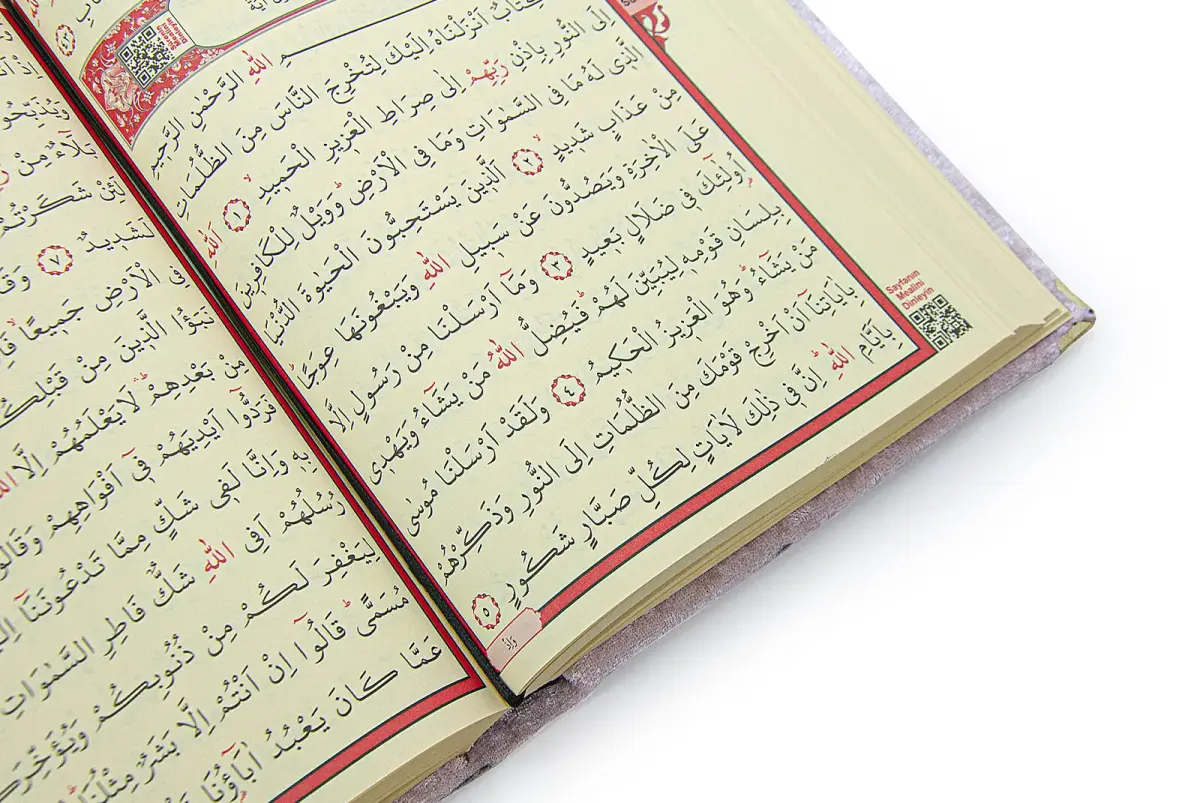 اللّٰهِ الرَّحْمٰنِ الرَّحٖيمِ
كِتَابٌ اَنْزَلْنَاهُ اِلَيْكَ لِتُخْرِجَ النَّاسَ مِنَ الظُّلُمَاتِ
اِلَى النُّورِ بِاِذْنِ رَبِّهِمْ اِلٰى صِرَاطِ الْعَزٖيزِ الْحَمٖيدِۙ ١ اَللّٰهِ
الَّذٖى لَهُ مَا فِى السَّمٰوَاتِ وَمَا فِى الْاَرْضِۜ وَوَيْلٌ لِلْكَافِرٖينَ
مِنْ عَذَابٍ شَدٖيدٍۙ ٢ اَلَّذٖينَ يَسْتَحِبُّونَ الْحَيٰوةَ الدُّنْيَا
عَلَى الْاٰخِرَةِ وَيَصُدُّونَ عَنْ سَبٖيلِ اللّٰهِ وَيَبْغُونَهَا عِوَجًا
اُولٰٓئِكَ فٖى ضَلَالٍ بَعٖيدٍ ٣ وَمَٓا اَرْسَلْنَا مِنْ رَسُولٍ اِلَّا
بِلِسَانِ قَوْمِهٖ لِيُبَيِّنَ لَهُمْۜ فَيُضِلُّ اللّٰهُ مَنْ يَشَٓاءُ وَيَهْدٖى
مَنْ يَشَٓاءُۜ وَهُوَ الْعَزٖيزُ الْحَكٖيمُ ٤ وَلَقَدْ اَرْسَلْنَا مُوسٰى
بِاٰيَاتِنَٓا اَنْ اَخْرِجْ قَوْمَكَ مِنَ الظُّلُمَاتِ اِلَى النُّورِ وَذَكِّرْهُمْ
بِاَيَّامِ اللّٰهِۜ اِنَّ فٖى ذٰلِكَ لَاٰيَاتٍ لِكُلِّ صَبَّارٍ شَكُورٍ ٥
وَاِذْ
Sayfanın
Mealini
Dinleyin
بَلَٓاءٌ مِنْ
لَئِنْ شَكَرْتُمْ
لَشَدٖيدٌ ٧
فِى الْاَرْضِ جَمٖيعًاۙ
نَبَؤُا الَّذٖينَ مِنْ قَبْلِكُمْ
مِنْ بَعْدِهِمْۜ لَا يَعْلَمُهُمْ اِلَّا
فَرَدُّٓوا اَيْدِيَهُمْ فٖٓى اَفْوَاهِهِمْ وَقَالُٓوا
بِهٖ وَاِنَّا لَفٖى شَكٍّ مِمَّا تَدْعُونَنَٓا
رُسُلُهُمْ اَفِى اللّٰهِ شَكٌّ فَاطِرِ السَّمٰوَاتِ
لِيَغْفِرَ لَكُمْ مِنْ ذُنُوبِكُمْ وَيُؤَخِّرَكُمْ
مُسَمًّىۜ قَالُٓوا اِنْ اَنْتُمْ اِلَّا بَشَرٌ مِثْلُنَاۜ
عَمَّا كَانَ يَعْبُدُ اٰبَٓاؤُنَا